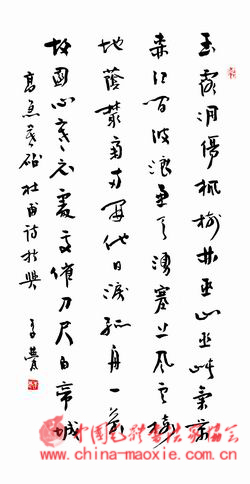 玉露凋傷楓樹林巫山巫峽氣蕭
森江間波浪兼天湧塞上風雲接
地陰叢菊兩開他日淚孤舟一系
故園心寒衣處處催刀尺白帝城
高急暮砧 杜甫詩秋興
www.china-maoxie.com.cn